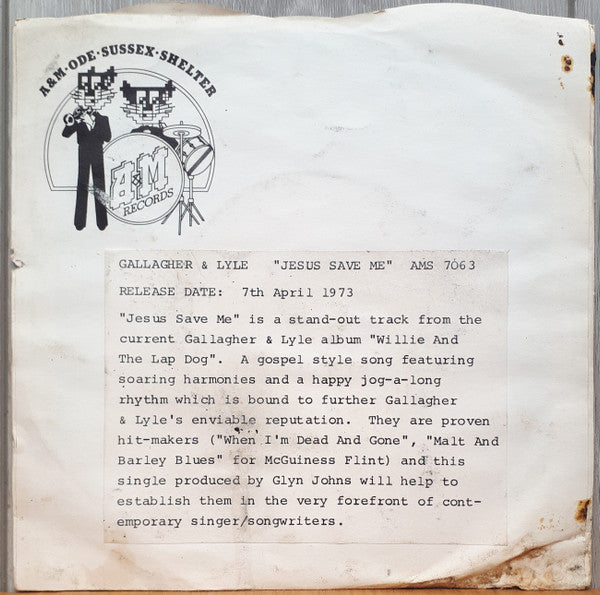 A&M·ODE·SUSSEX·SHELTER
A&M
RECORDS
GALLAGHER & LYLE "JESUS SAVE ME" AMS 7063
RELEASE DATE: 7th April 1973
"Jesus Save Me" is a stand-out track from the
current Gallagher & Lyle album "Willie And
The Lap Dog". A gospel style song featuring
soaring harmonies and a happy jog-a-long
rhythm which is bound to further Gallagher
& Lyle's enviable reputation. They are proven
hit-makers ("When I'm Dead And Gone", "Malt And
Barley Blues" for McGuiness Flint) and this
single produced by Glyn Johns will help to
establish them in the very forefront of cont-
emporary singer/songwriters.